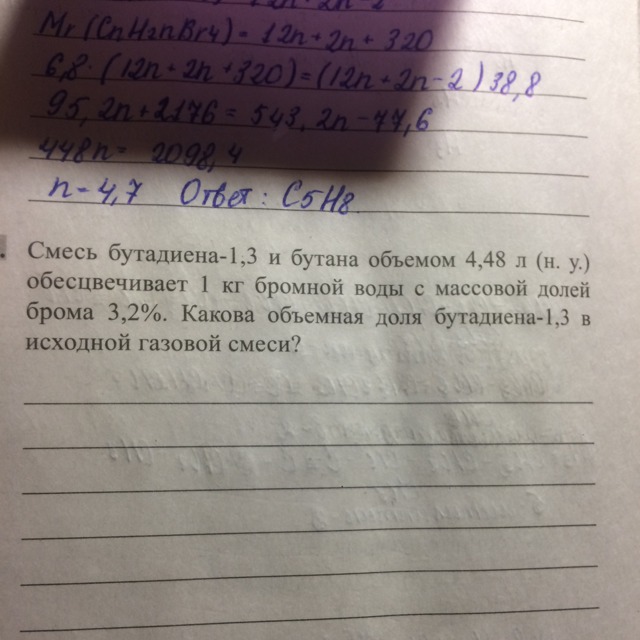 Mr(CnH2nBr4) = 12n+2n+ 320
6,8·(12n+2n+320)=(12n+2n-2)38,8
95,2n+2176 = 543,2n-77,6
448n= 2098,4
n=4,7 Ответ: C5H8
Смесь бутадиена-1,3 и бутана объемом 4,48 л (н. у.)
обесцвечивает 1 кг бромной воды с массовой долей
брома 3,2%. Какова объемная доля бутадиена-1,3 в
исходной газовой смеси?